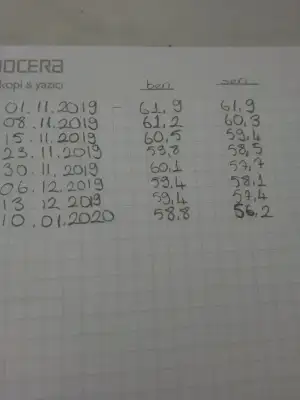 KYOCERA
kopi & yazıcı
beri seri
01.11.2019 - 61.9 61,9
08.11.2019 61.2 60.3
15.11.2019 60.5 59.4
23.11.2019 59.8 58,5
30.11.2019 60.1 57,7
06.12.2019 59.4 58,1
13 12 2019 59,4 57.4
10.01.2020 58.8 56.2